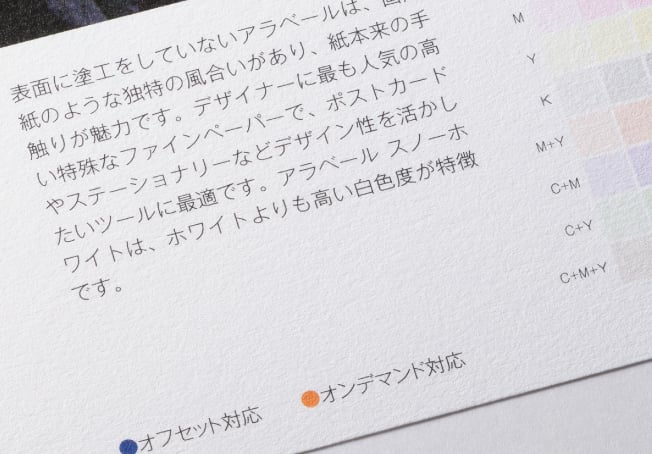 表面に塗工をしていないアラベールは、画
紙のような独特の風合いがあり、紙本来の手
触りが魅力です。デザイナーに最も人気の高
い特殊なファインペーパーで、ポストカード
やステーショナリーなどデザイン性を活かし
たいツールに最適です。アラベール スノーホ
ワイトは、ホワイトよりも高い白色度が特徴
です。
M
Y
K
M+Y
C+M
C+Y
C+M+Y
オフセット対応
オンデマンド対応